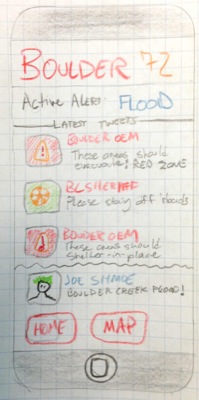 BOULDER 72
Active Alert: FLOOD
LATEST TWEETS
BOULDER OEM
These areas should
evacuate! RED ZONE
BC SHERIFF
Please stay off roads
BOULDER OEM
These areas should
shelter-in-place
JOE SHMOE
BOULDER CREEK FLOOD!
HOME MAP